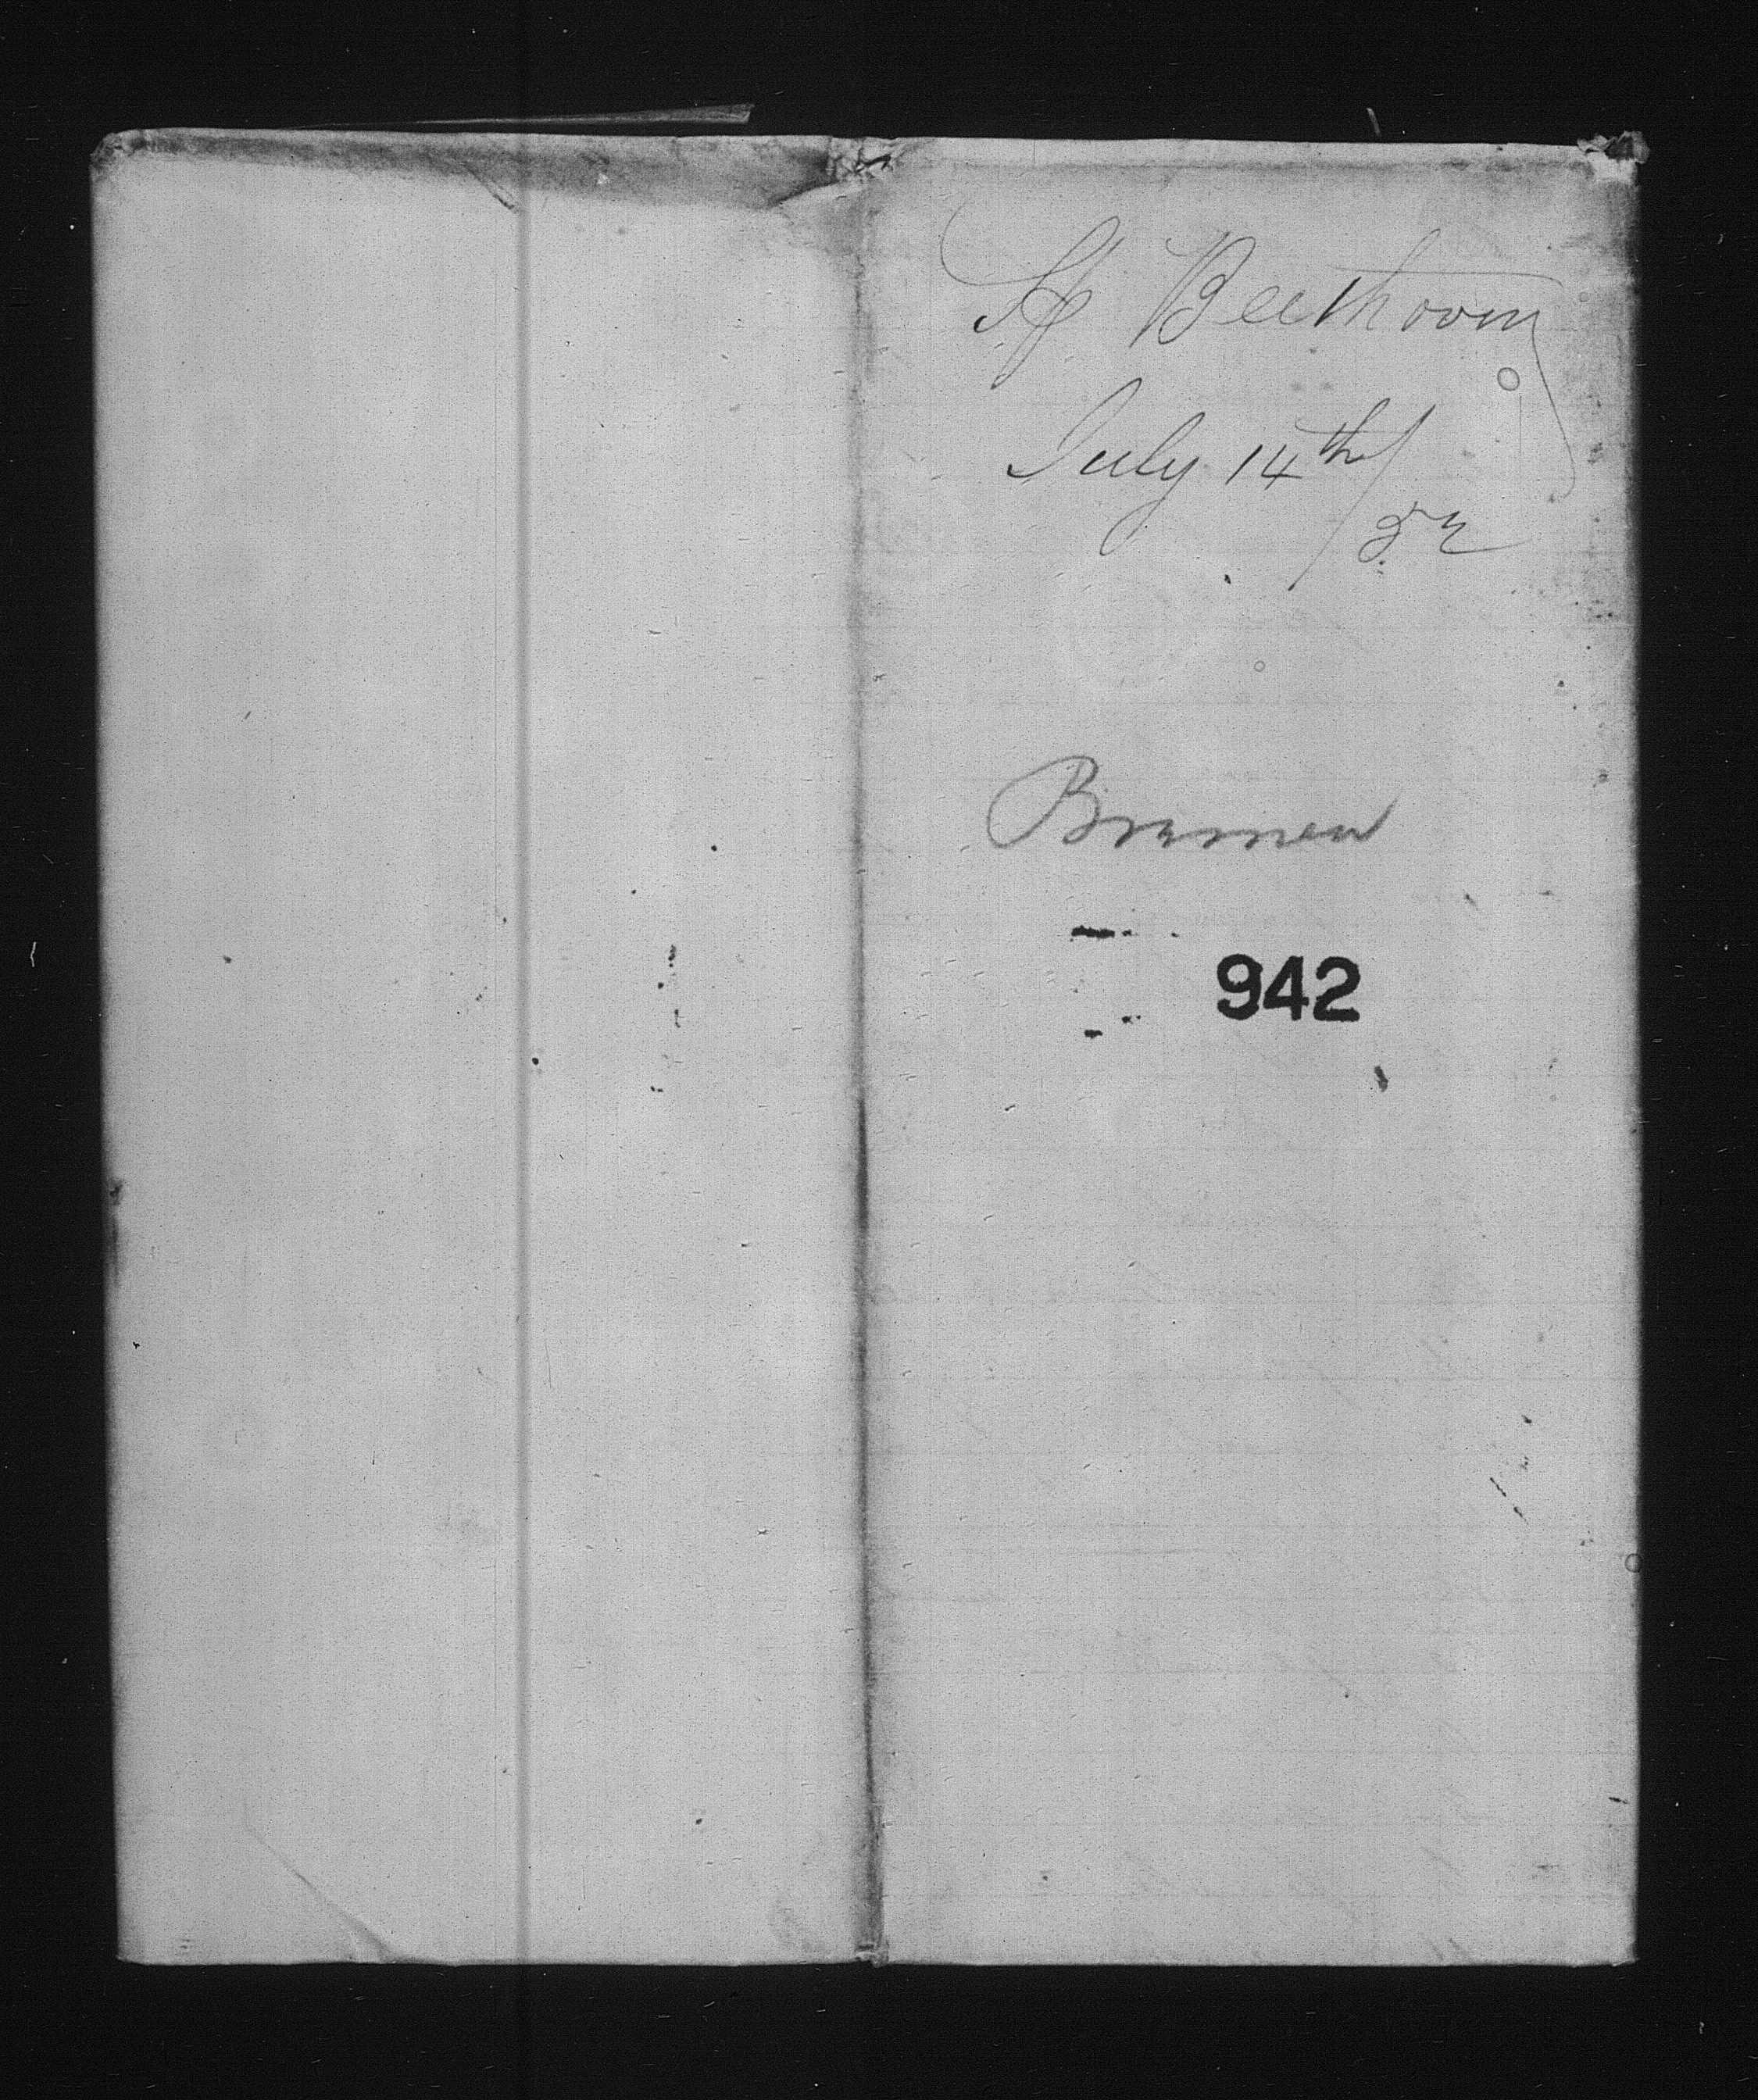 Sp Beethoven
July 14th/
52
Bremen
942